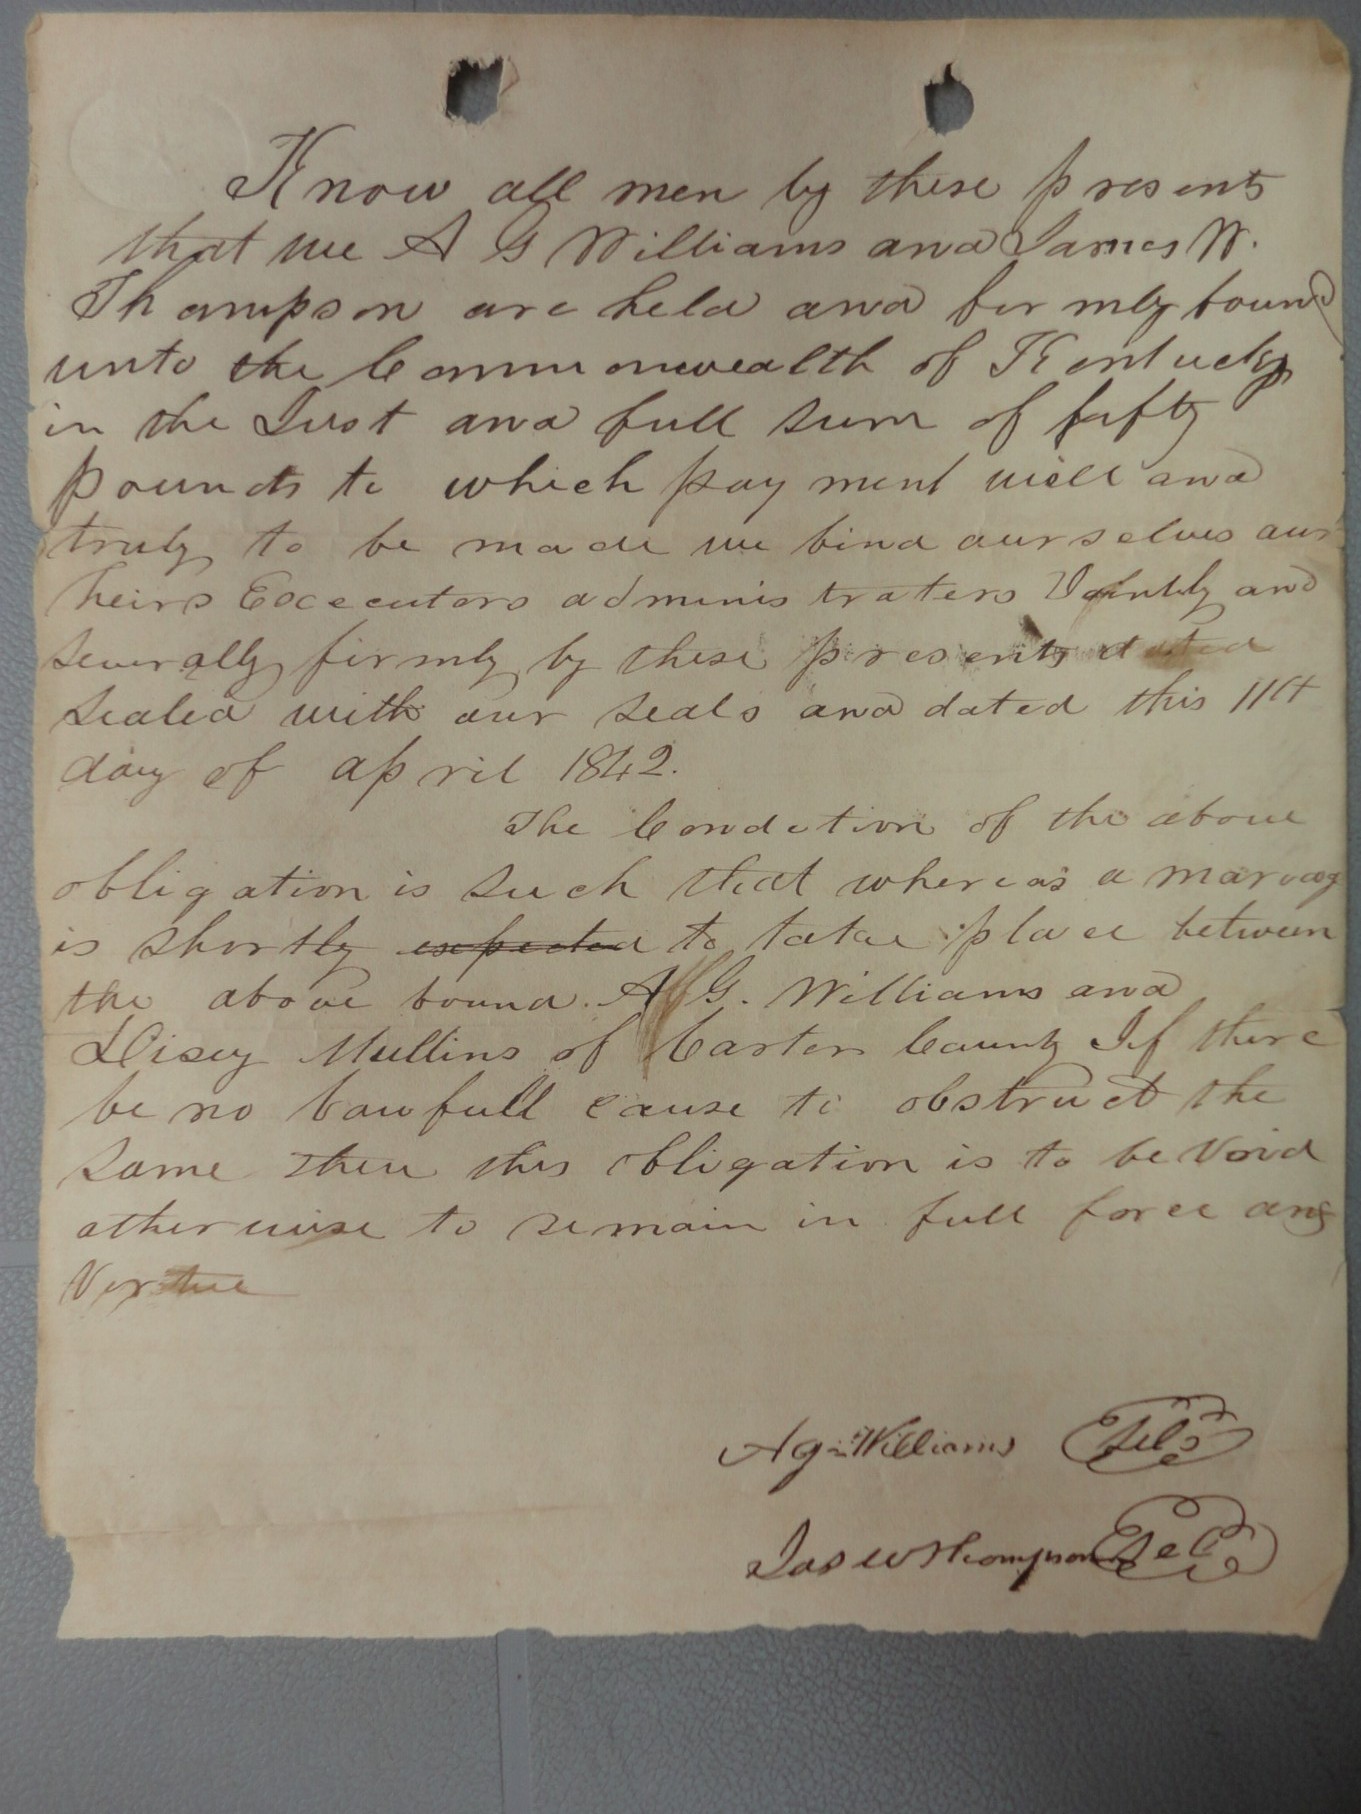 Know all men by these presents
that we A G Williams and James W.
Thompson are held and firmly bound
unto the Commonwealth of Kentucky
in the Just and full sum of fifty
pounds to which payment well and
truly to be made we bind ourselves our
heirs Excecutors administraters Jointly and
severally firmly by these presents
sealed with our seals and dated this 11th
day of april 1842.
The Condition of the above
obligation is such that whereas a marriag
is shortly expected to take place between
the above bound. A G. Williams and
Disey Mullins of Carter County If there
be no lawfull cause to obstruct the
same then this obligation is to be Void
otherwise to remain in full force and
Virtue
A G Williams Seal
Jas W Thompson Seal